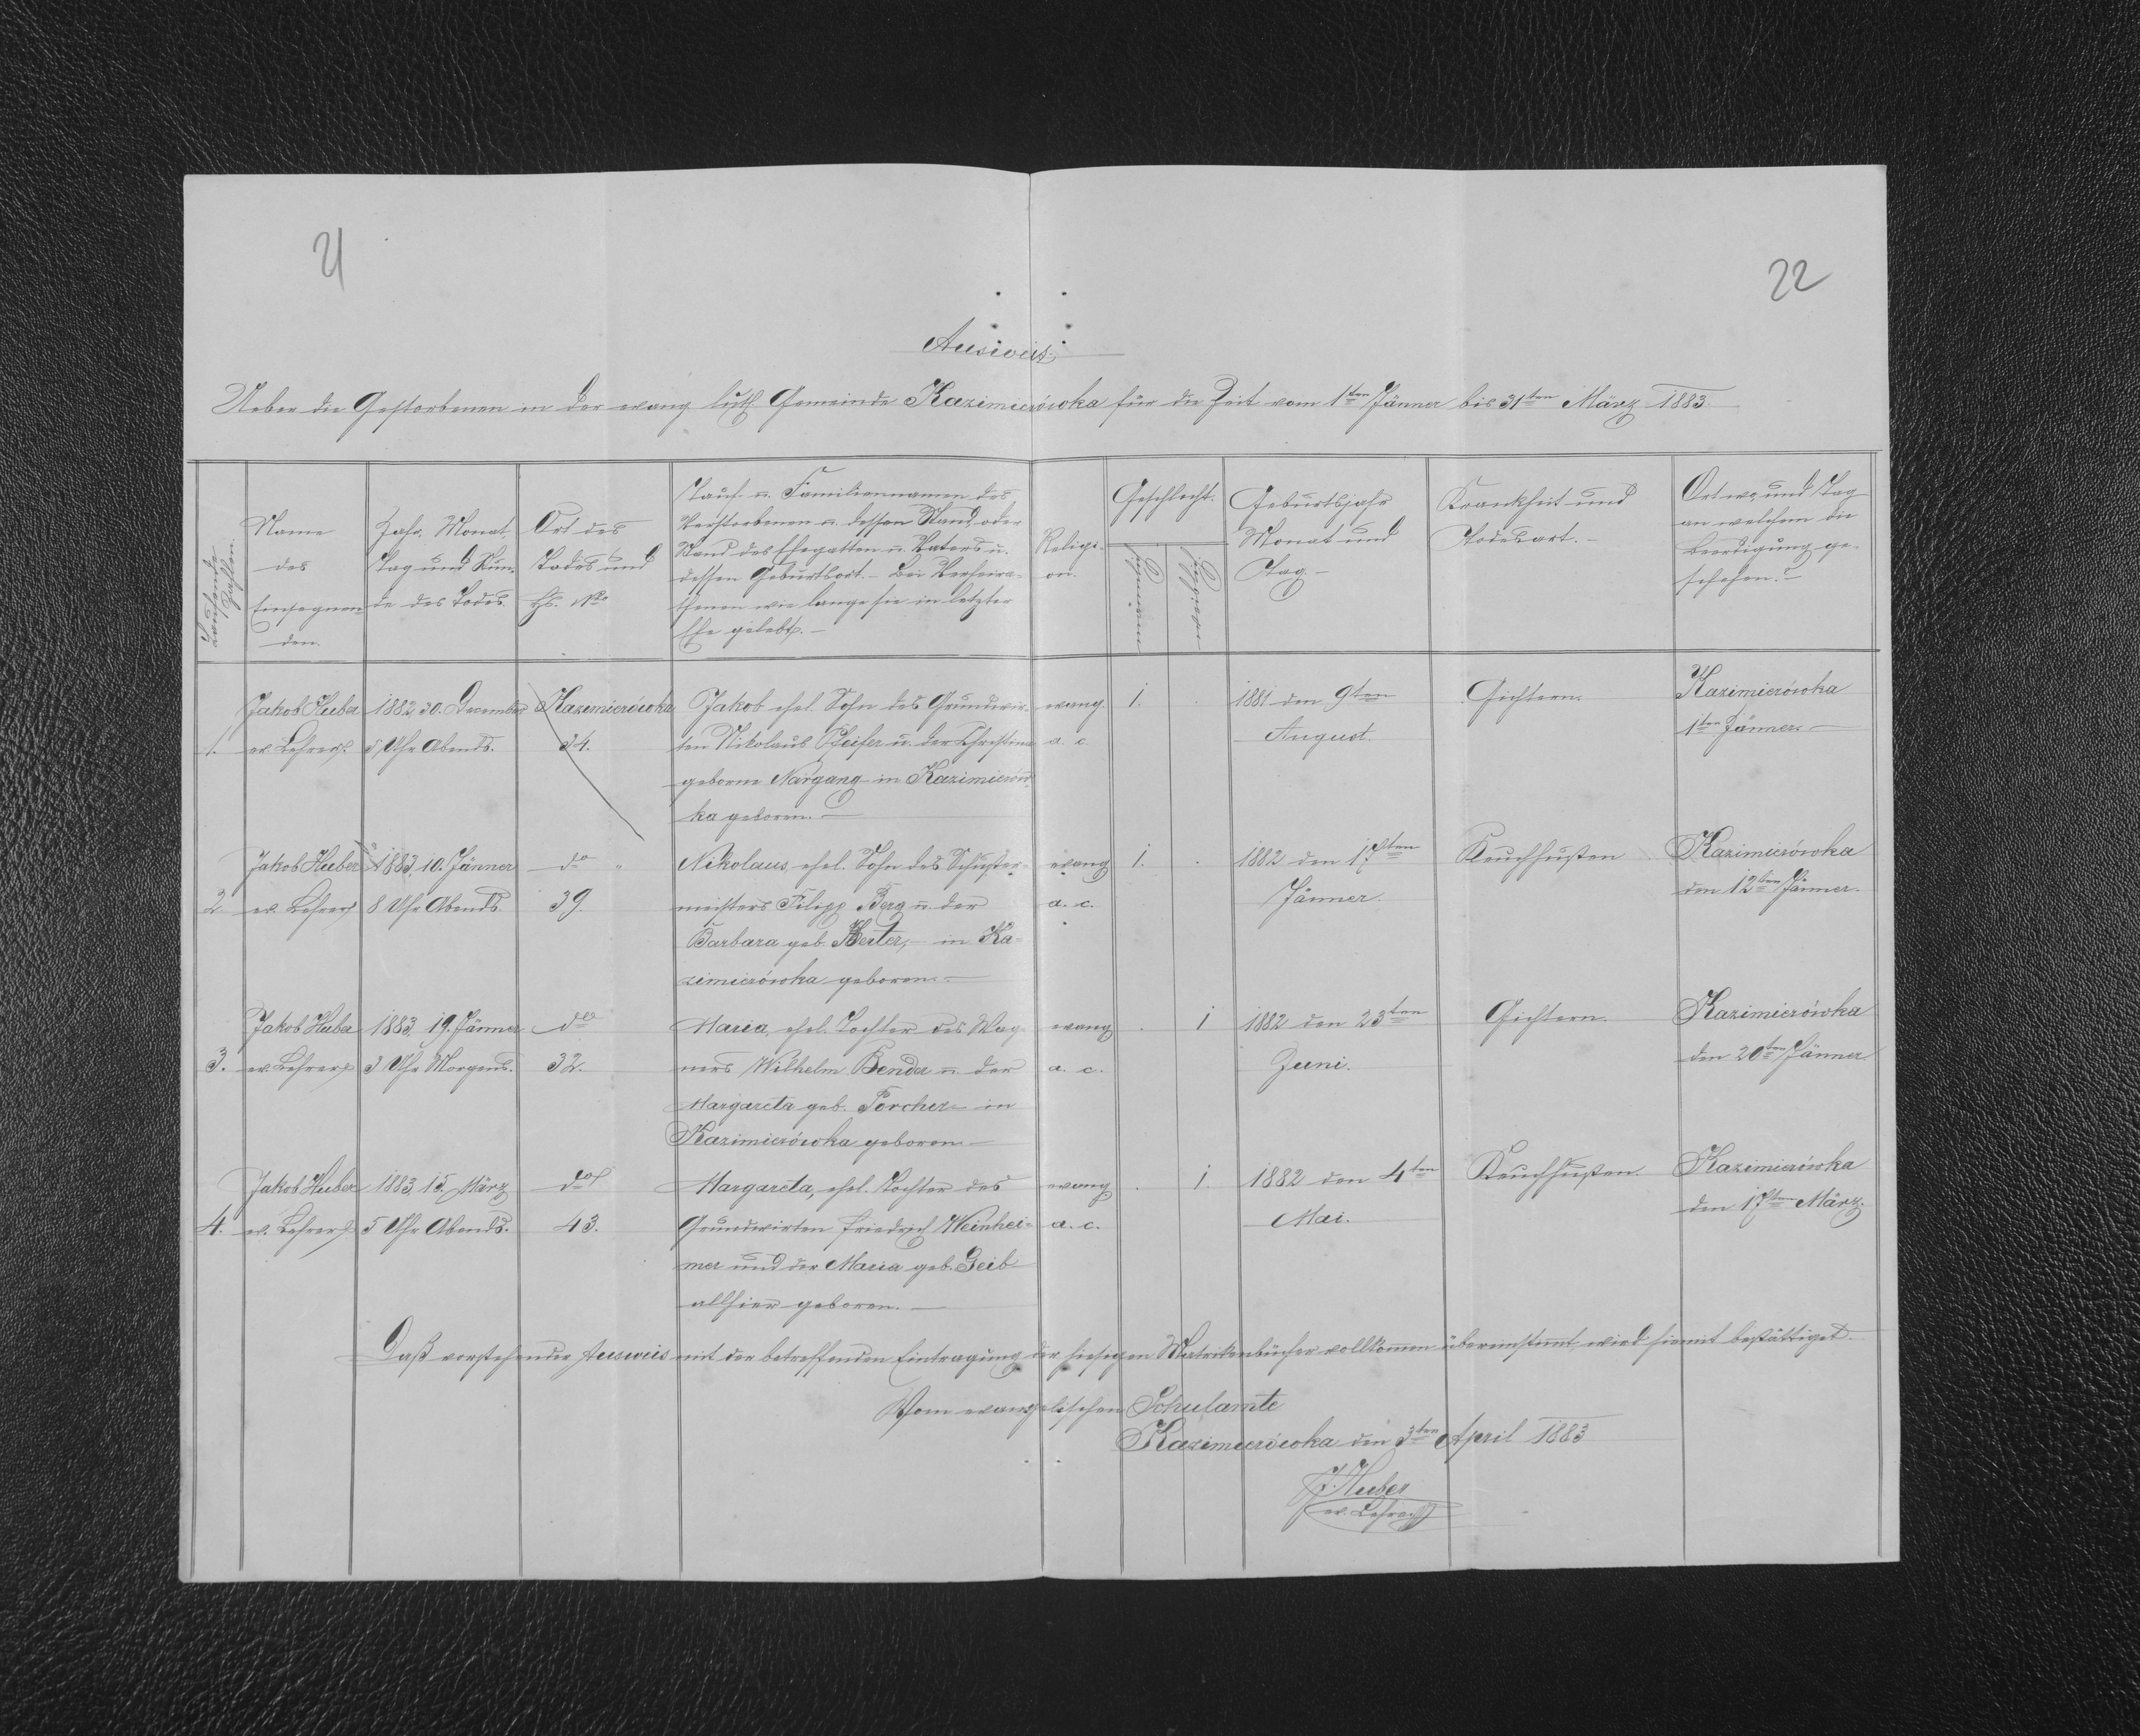 21
22
Ausweis
Ueber die Gestorbenen in der evang. luth. Gemeinde Kazimierówka für die Zeit vom 1ten Jänner bis 31ten März 1883.
Laufende Zahlen.
Name
des
Einsegnen-
den
Jahr, Monat,
Tag und Stun-
de des Todes.
Ort des
Todes und
Hs. Nro
Tauf- u. Familiennamen des
Verstorbenen u. dessen Stand oder
Stand des Ehegatten u. Vaters u.
dessen Geburtsort. – Bei Verheira-
thenen wie lange sie in letzter
Ehe gelebt. –
Religi-
on.
Geschlecht.
männlich
weiblich
Geburtsjahr
Monat und
Tag. –
Krankheit und
Todesart. –
Ort wo, und Tag
an welchem die
Beerdigung ge-
schehen. –
1.
Jakob Huber
ev. Lehrer
1882, 30. December
5 Uhr Abends.
Kazimierówka
34.
Jakob ehel. Sohn des Grundwir-
ten Nikolaus Pfeifer u. der Christina
geborne Nargang in Kazimierów-
ka geboren. –
evang.
a. c.
1.
1881 den 9ten
August.
Gichtern.
Kazimierówka
1ten Jänner. –
2.
Jakob Huber
ev. Lehrer
1883, 10. Jänner
8 Uhr Abends.
do "
39.
Nikolaus, ehel. Sohn des Schuster-
meisters Filipp Berg u. der
Barbara geb. Herter, – in Ka-
zimierówka geboren. –
evang
a. c.
1.
1882 den 17ten
Jänner.
Keuchhusten
Kazimierówka
den 12ten Jänner.
3.
Jakob Huber
ev. Lehrer
1883, 19. Jänner
3 Uhr Morgens.
do
32.
Maria, ehel. Tochter des Wag-
ners Wilhelm Bender u. der
Margareta geb. Porcher – in
Kazimierówka geboren –
evang
a. c.
1
1882 den 23ten
Juni.
Gichtern.
Kazimierówka
den 20ten Jänner.
4.
Jakob Huber
ev. Lehrer
1883, 15. März
5 Uhr Abends.
do
43.
Margareta, ehel. Tochter des
Grundwirten Friedrich Weinhei-
mer und der Maria geb. Geib
allhier geboren. –
evang
a. c.
1.
1882 den 4ten
Mai.
Keuchhusten.
Kazimierówka
den 17ten März.
Daß vorstehender Ausweis mit der betreffenden Eintragung der hiesigen Matrikenbücher vollkommen übereinstimmt wird hiemit bestättiget. –
Vom evangelischen Schulamte
Kazimierówka den 3ten April 1883
J. Huber
ev. Lehrer